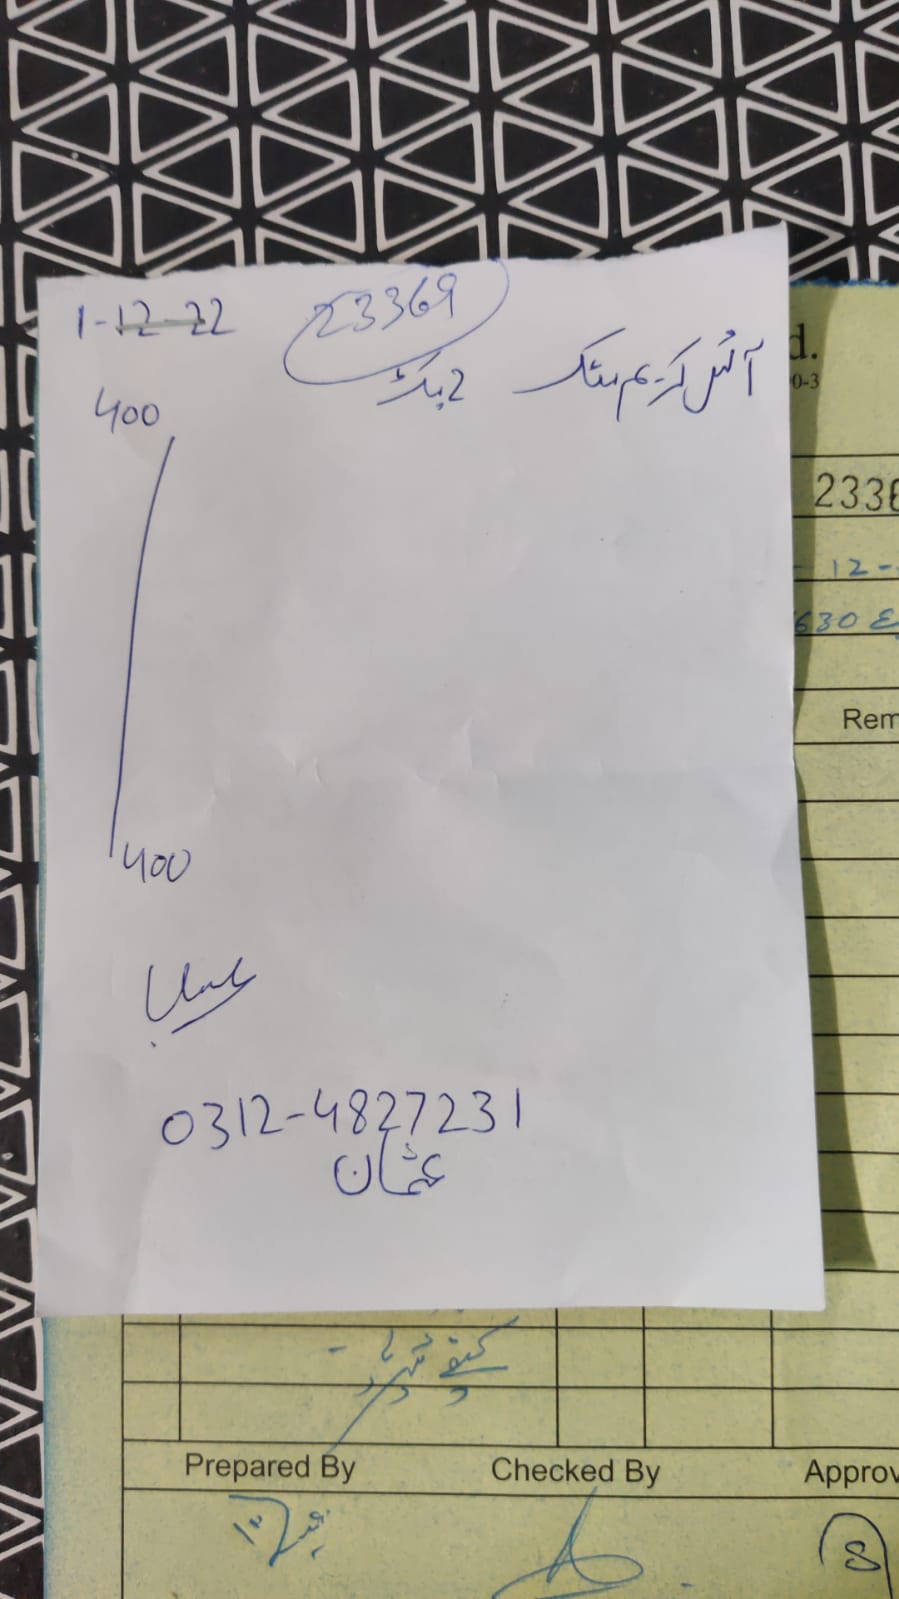 1-12-22 23369
آئس کریم سٹک 2 پیکٹ 400
400
0312-4827231
عثمان
d.
0-3
2336
- 12 -
630
Rem
Prepared By Checked By Approv